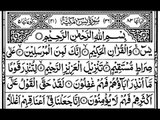 سُورَةُ يٰسٓ مَكِّيَّةٌ
بِسْمِ اللهِ الرَّحْمٰنِ الرَّحِيْمِ
يٰسٓ وَالْقُرْاٰنِ الْحَكِيْمِ اِنَّكَ لَمِنَ الْمُرْسَلِيْنَ عَلٰى
صِرَاطٍ مُّسْتَقِيْمٍ تَنْزِيْلَ الْعَزِيْزِ الرَّحِيْمِ لِتُنْذِرَ قَوْمًا
مَّآ اُنْذِرَ اٰبَآؤُهُمْ فَهُمْ غٰفِلُوْنَ لَقَدْ حَقَّ الْقَوْلُ عَلٰٓى
اَكْثَرِهِمْ فَهُمْ لَا يُؤْمِنُوْنَ اِنَّا جَعَلْنَا فِيْٓ اَعْنَاقِهِمْ اَغْلٰلًا